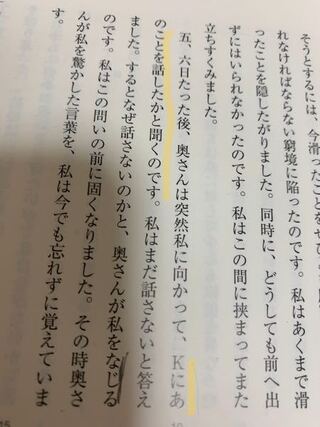 そうとするには、今滑ったことをぜひと
れなければならない窮境に陥ったのです。私はあくまで滑
ったことを隠したがりました。同時に、どうしても前へ出
ずにはいられなかったのです。私はこの間に挟まってまた
立ちすくみました。
五、六日たった後、奥さんは突然私に向かって、Kにあ
のことを話したかと聞くのです。私はまだ話さないと答え
ました。するとなぜ話さないのかと、奥さんが私をなじる
のです。私はこの問いの前に固くなりました。その時奥さ
んが私を驚かした言葉を、私は今でも忘れずに覚えていま
す。